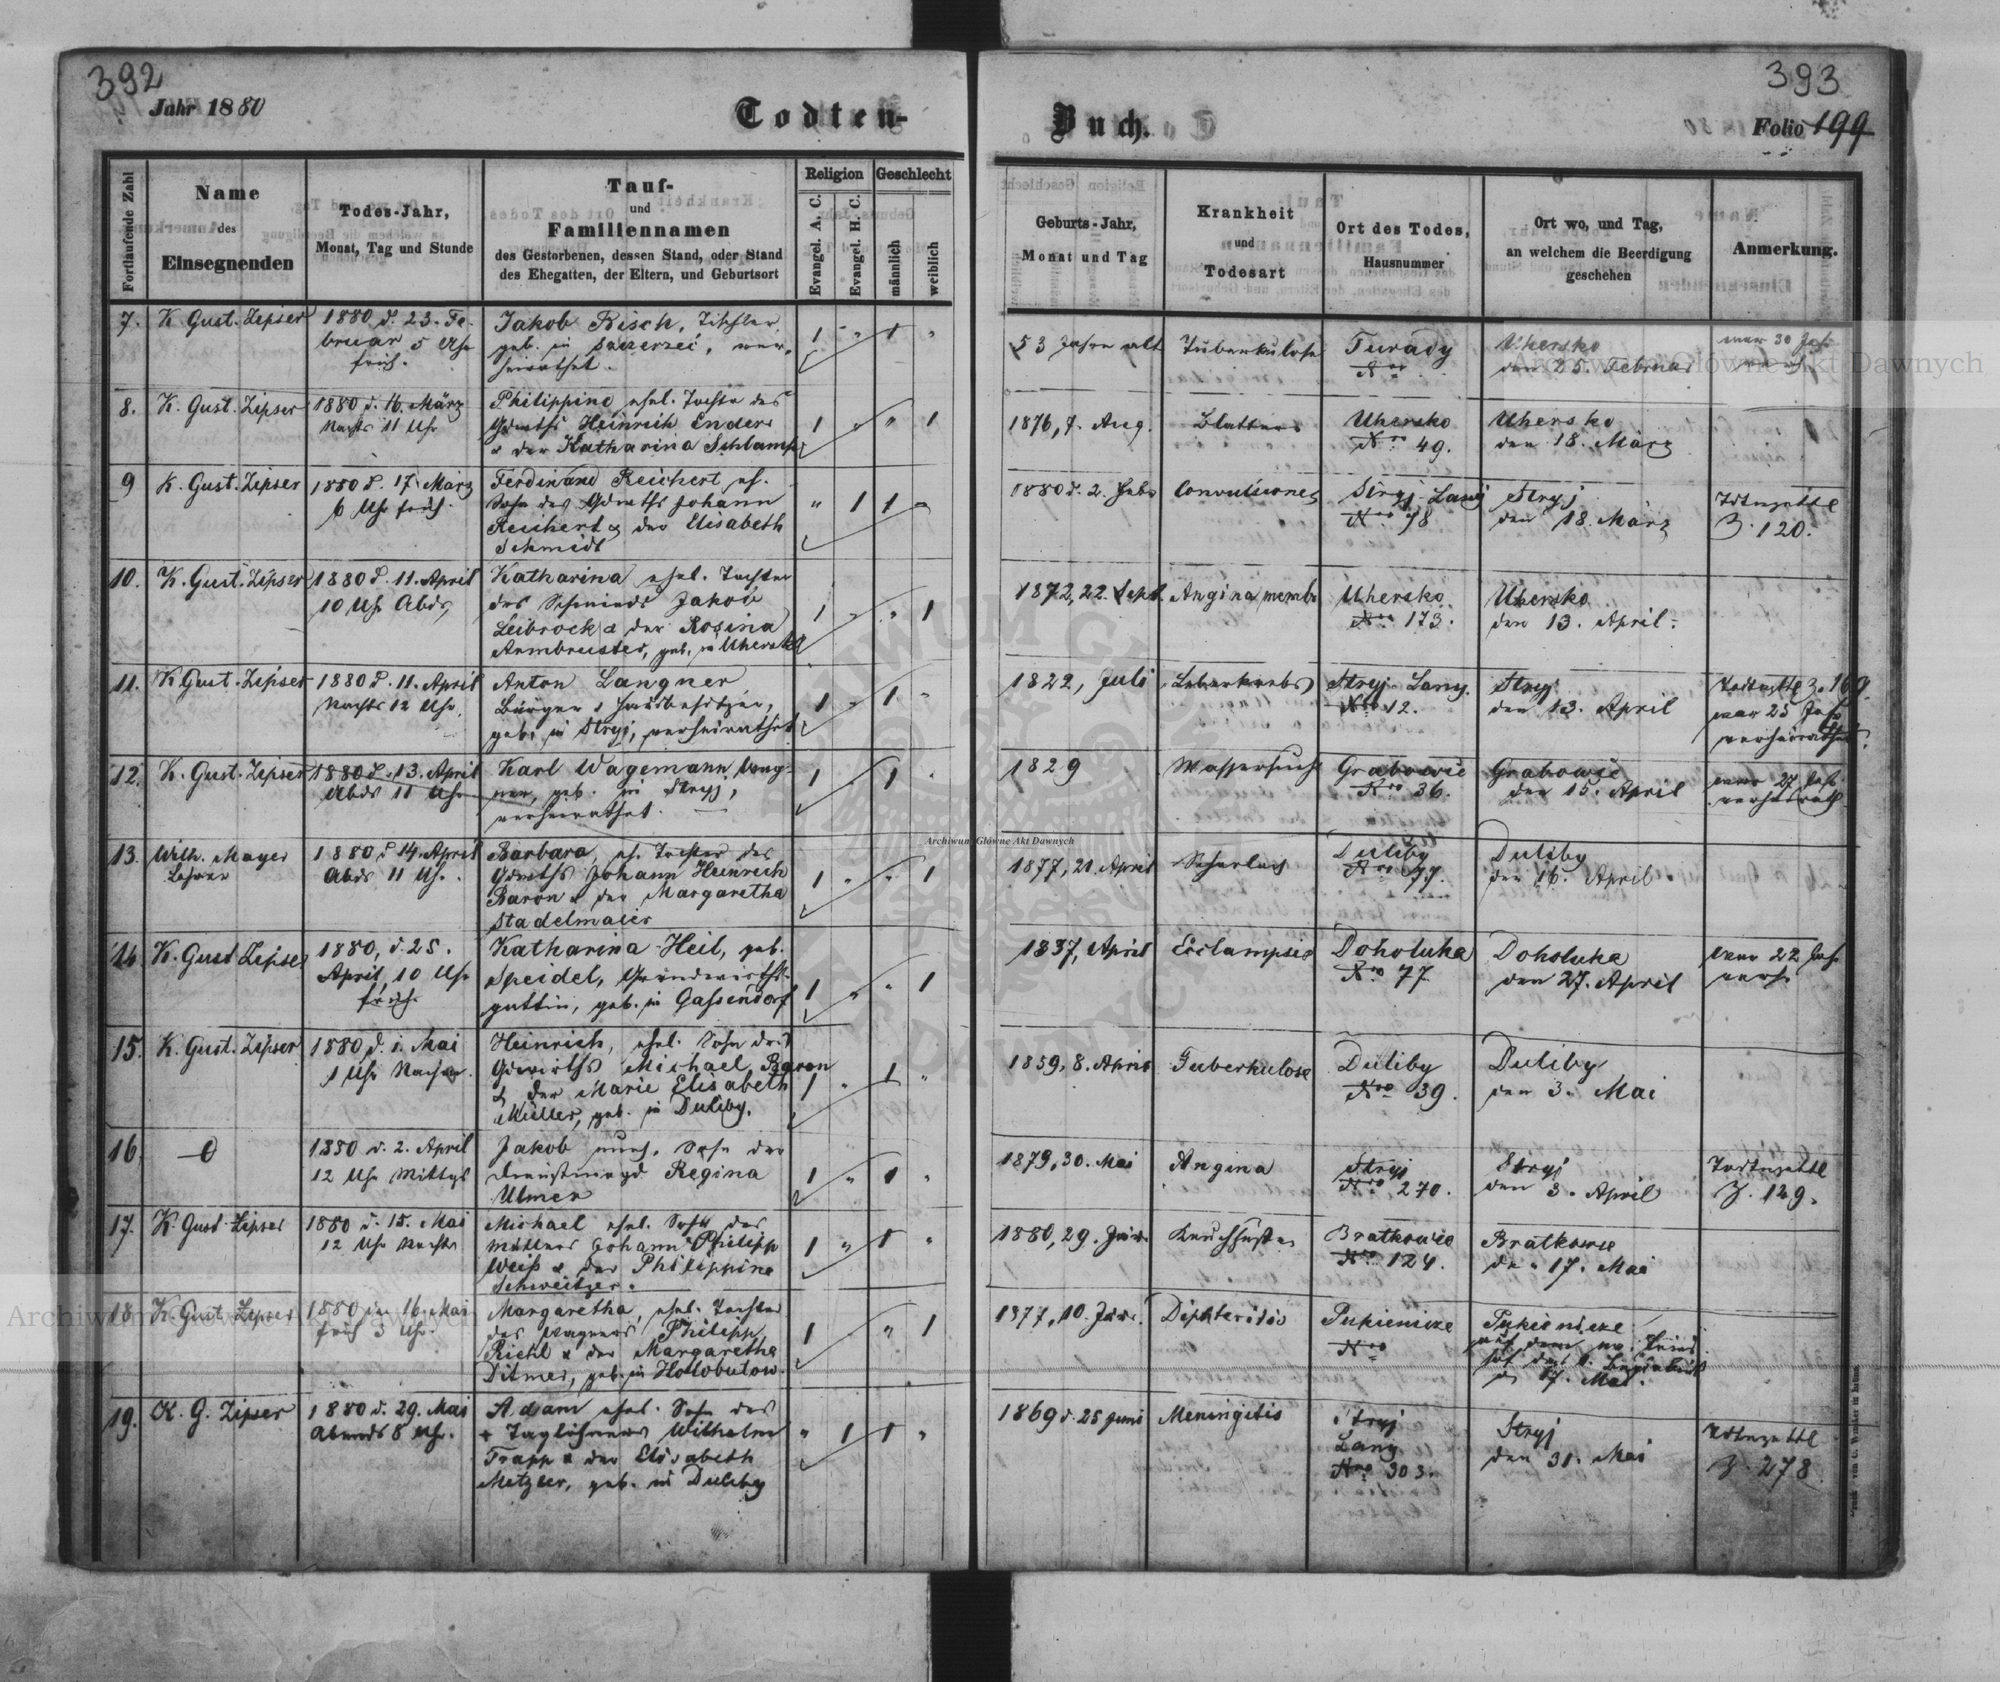 392
Jahr 1880
Todten-
Buch.
393
Folio 199
Fortlaufende Zahl
Name
des
Einsegnenden
Todes-Jahr,
Monat, Tag und Stunde
Tauf-
und
Familiennamen
des Gestorbenen, dessen Stand, oder Stand
des Ehegatten, der Eltern, und Geburtsort
Religion
Evangel. A. C.
Evangel. H. C.
Geschlecht
männlich
weiblich
Geburts-Jahr,
Monat und Tag
Krankheit
und
Todesart
Ort des Todes,
Hausnummer
Ort wo, und Tag,
an welchem die Beerdigung
geschehen
Anmerkung.
7.
K. Gust. Zipser
1880 d. 23. Fe-
bruar 5 Uhr
früh.
Jakob Risch, Tischler
geb. in Szczerzec, ver-
heirathet.
1 " 1 "
53 Jahre alt
Tuberkulose
Turady
Nro
Uhersko
den 25. Februar
war 30 Jah.
8.
K. Gust. Zipser
1880 d. 16. März
Nachts 11 Uhr
Philippine, ehel. Tochter des
Grwths Heinrich Enders
& der Katharina Schlamp
1 " " 1
1876, 7. Aug.
Blattern
Uhersko
Nro 49.
Uhersko
den 18. März
9
K. Gust. Zipser
1880 d. 17. März
6 Uhr früh.
Ferdinand Reichert, eh.
Sohn des Grwths Johann
Reichert & der Elisabeth
Schmidt
" 1 1 "
1880 d. 2. Febr
Convulsiones
Stryj Lany
Nro 78
Stryj
den 18. März
Todtenzettl
Z. 120.
10.
K. Gust. Zipser
1880 d. 11. April
10 Uhr Abds,
Katharina, ehel. Tochter
des Schmieds Jakob
Leibrock & der Rosina
Armbruster, geb. in Uhersko
1 " " 1
1872, 22. Sept.
Angina membr
Uhersko
Nro 173.
Uhersko
den 13. April.
11.
K. Gust. Zipser
1880 d. 11. April
Nachts 12 Uhr,
Anton Langner
Bürger & Hausbesitzer,
geb. in Stryj, verheirathet
1 " 1 "
1822, Juli
Leberkrebs
Stryj Lany.
Nro 12.
Stryj
den 13. April
Todtenzettl Z. 169.
war 25 Jahr
verheirathet.
12.
K. Gust. Zipser
1880 d. 13. April
Abds 11 Uhr
Karl Wagemann, Wag-
ner, geb. in Stryj,
verheirathet.
1 " 1 "
1829
Wassersucht
Grabowic
Nro 36.
Grabowic
den 15. April
war 27 Jahr
verheirath
13.
Wilh. Mayer
Lehrer
1880, d 14. April
Abds 11 Uhr.
Barbara, eh. Tochter des
Grwths Johann Heinrich
Baron & der Margaretha
Stadelmaier
1 " " 1
1877, 21. April
Scharlach
Duliby
Nro 77.
Duliby
den 16. April.
14.
K. Gust Zipser
1880, d. 25.
April, 10 Uhr
früh.
Katharina Heil, geb.
Speidel, Grundwirths-
gattin, geb. in Gassendorf
1 " " 1
1837, April
Eclampsie
Doholuka
Nro 77
Doholuka
den 27. April
war 22 Jah.
verh.
15.
K. Gust. Zipser
1880 d. 1. Mai
1 Uhr Nachm.
Heinrich, ehel. Sohn des
Grwirths Michael Baron
& der Marie Elisabeth
Müller, geb. in Duliby.
1 " 1 "
1859, 8. April
Tuberkulose
Duliby
Nro 39.
Duliby
den 3. Mai
16.
1880 d. 2. April
12 Uhr Mittgs
Jakob, uneh. Sohn der
Dienstmagd Regina
Ulmer
1 " 1 "
1879, 30. Mai
Angina
Stryj
Nro 270.
Stryj
den 3. April
Todtenzettl
Z. 149.
17.
K. Gust. Zipser
1880 d. 15. Mai
12 Uhr Nachts
Michael, ehel. Sohn des
Müllers Johann Philipp
Weiß & der Philippine
Schweitzer.
1 " 1 "
1880, 29. Jän.
Keuchhusten
Bratkowic
Nro 124.
Bratkowic
den 17. Mai
18
K. Gust. Zipser
1880 den 16. Mai
früh 3 Uhr.
Margaretha, ehel. Tochter
des Wagners Philipp
Riehl & der Margaretha
Ditmer, geb. in Holobutow.
1 " 1
1877, 10. Jän.
Diphteritis
Pukienicze
Nro
Pukienicze
auf dem
17. Mai.
19.
K. G. Zipser
1880 d. 29. Mai
Abends 8 Uhr.
Adam ehel. Sohn des
Taglöhners Wilhelm
Trapp & der Elisabeth
Metzler, geb. in Duliby
" 1 1 "
1869 d. 25 Juni
Meningitis
Stryj
Lany
Nro 303.
Stryj
den 31. Mai
Todtenzettl
Z. 278
Archiwum Główne Akt Dawnych
Archiwum Główne Akt Dawnych
Archiwum Główne Akt Dawnych